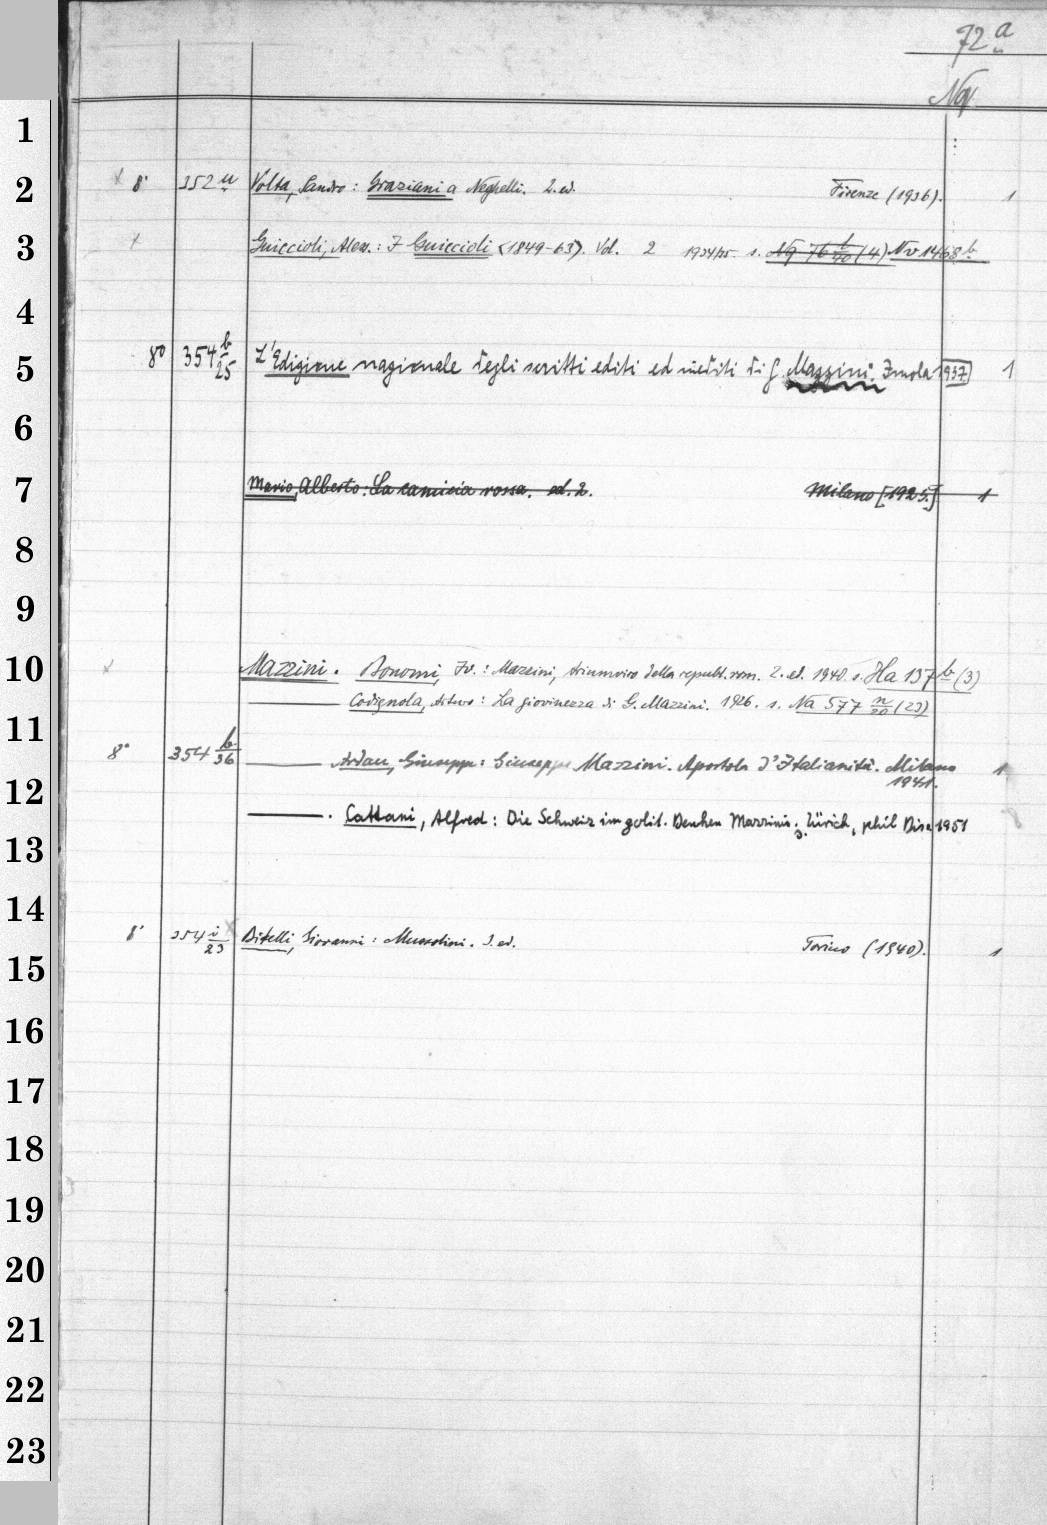 72 a
Nq
1
2 8° 352 u Volta, Sandro: Graziani a Neghelli. 2. ed. Firenze (1936). 1
3 Guiccioli, Aless.: I Guiccioli <1849-63>. Vol. 2 1934/35. s. Nq 76 b/40 (4) Nv 1468 b
4
5 8° 354 b/25 L'Edizione nazionale degli scritti editi ed inediti di G. Mazzini. Imola 1937 1
6
7 Mario, Alberto: La camicia rossa. ed. 2. Milano [1925.] 1
8
9
10 Mazzini. Bonomi, Iv.: Mazzini, triumviro della republ. rom. 2. ed. 1940. s. Ha 137 b (3)
Codignola, Arturo: La giovinezza di G. Mazzini. 1926. s. Na 577 n/20 (23)
11
8° 354 b/36 Ardau, Giuseppe: Giuseppe Mazzini. Apostolo d'Italianità. Milano 1
12 1941.
. Cattani, Alfred: Die Schweiz im polit. Denken Mazzinis. Zürich, phil Diss 1951
13
14
8° 354 i/23 Bitelli, Giovanni: Mussolini. 3. ed. Torino (1940). 1
15
16
17
18
19
20
21
22
23